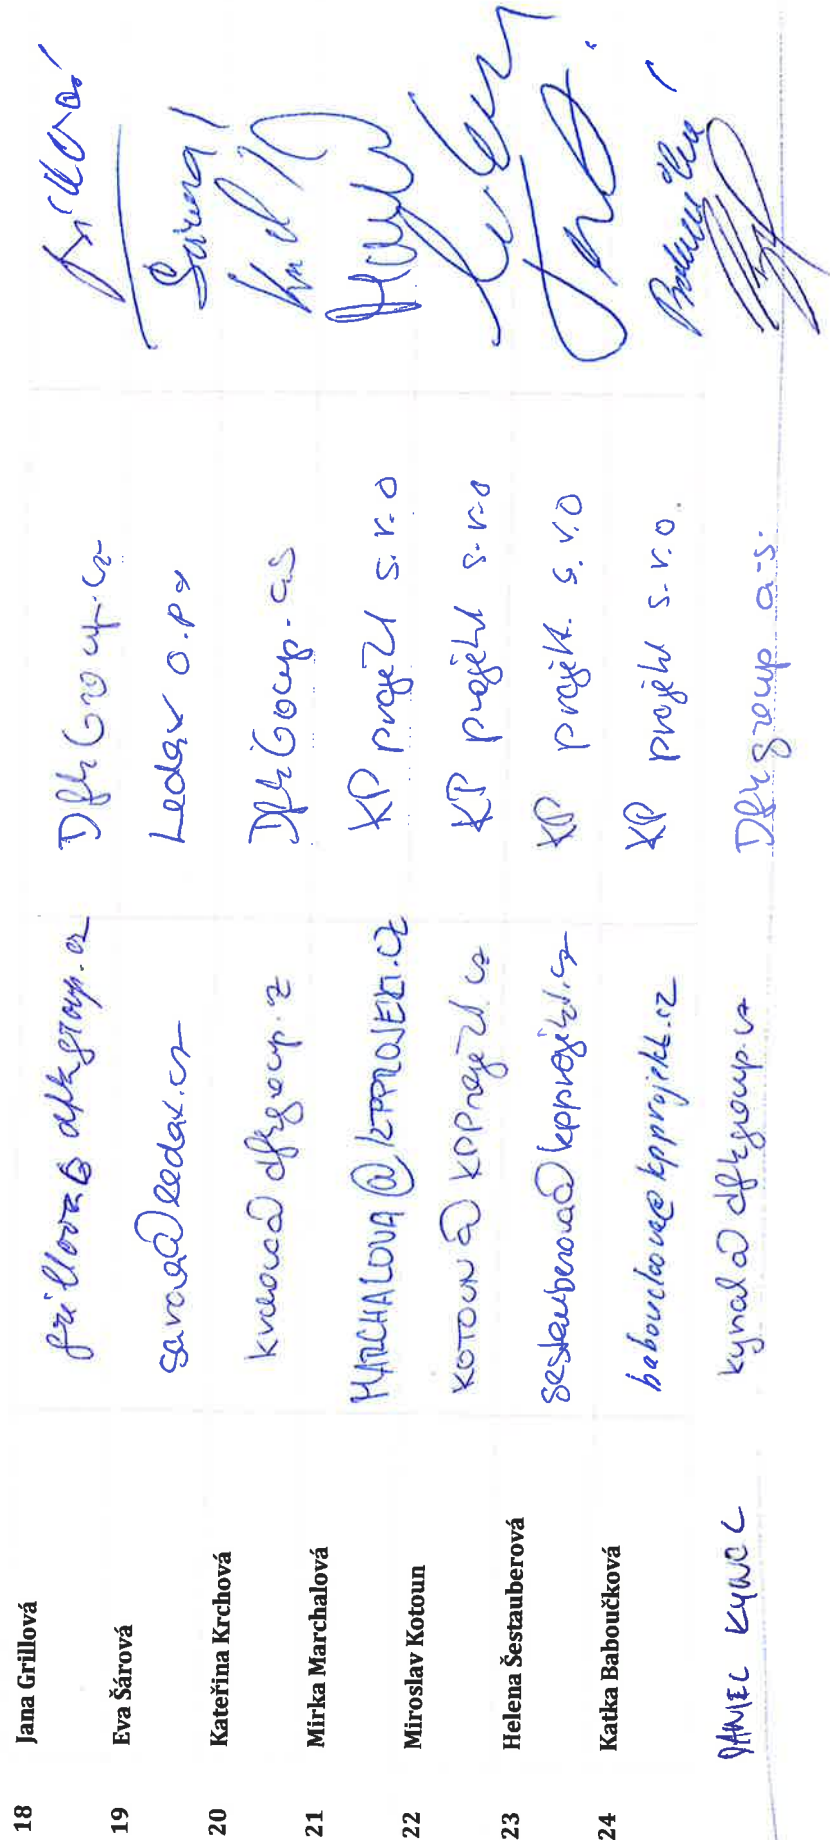 18 Jana Grillová grillova@dfkgroup.cz Dfk Group.cz Grillová
19 Eva Šárová sarova@ledax.cz Ledax o.p.s Šárová
20 Kateřina Krchová krchova@dfkgroup.cz Dfk Group.as
21 Mirka Marchalová MARCHALOVA@KPPROJEKT.CZ KP projekt s.r.o
22 Miroslav Kotoun KOTOUN@KPProjekt.cz KP projekt s.r.o
23 Helena Šestauberová sestauberova@kpprojekt.cz KP projekt. s.r.o
24 Katka Baboučková babouckova@kpprojekt.cz KP projekt s.r.o.
DANIEL KYNCL kyncl@dfkgroup.cz Dfkgroup a.s.